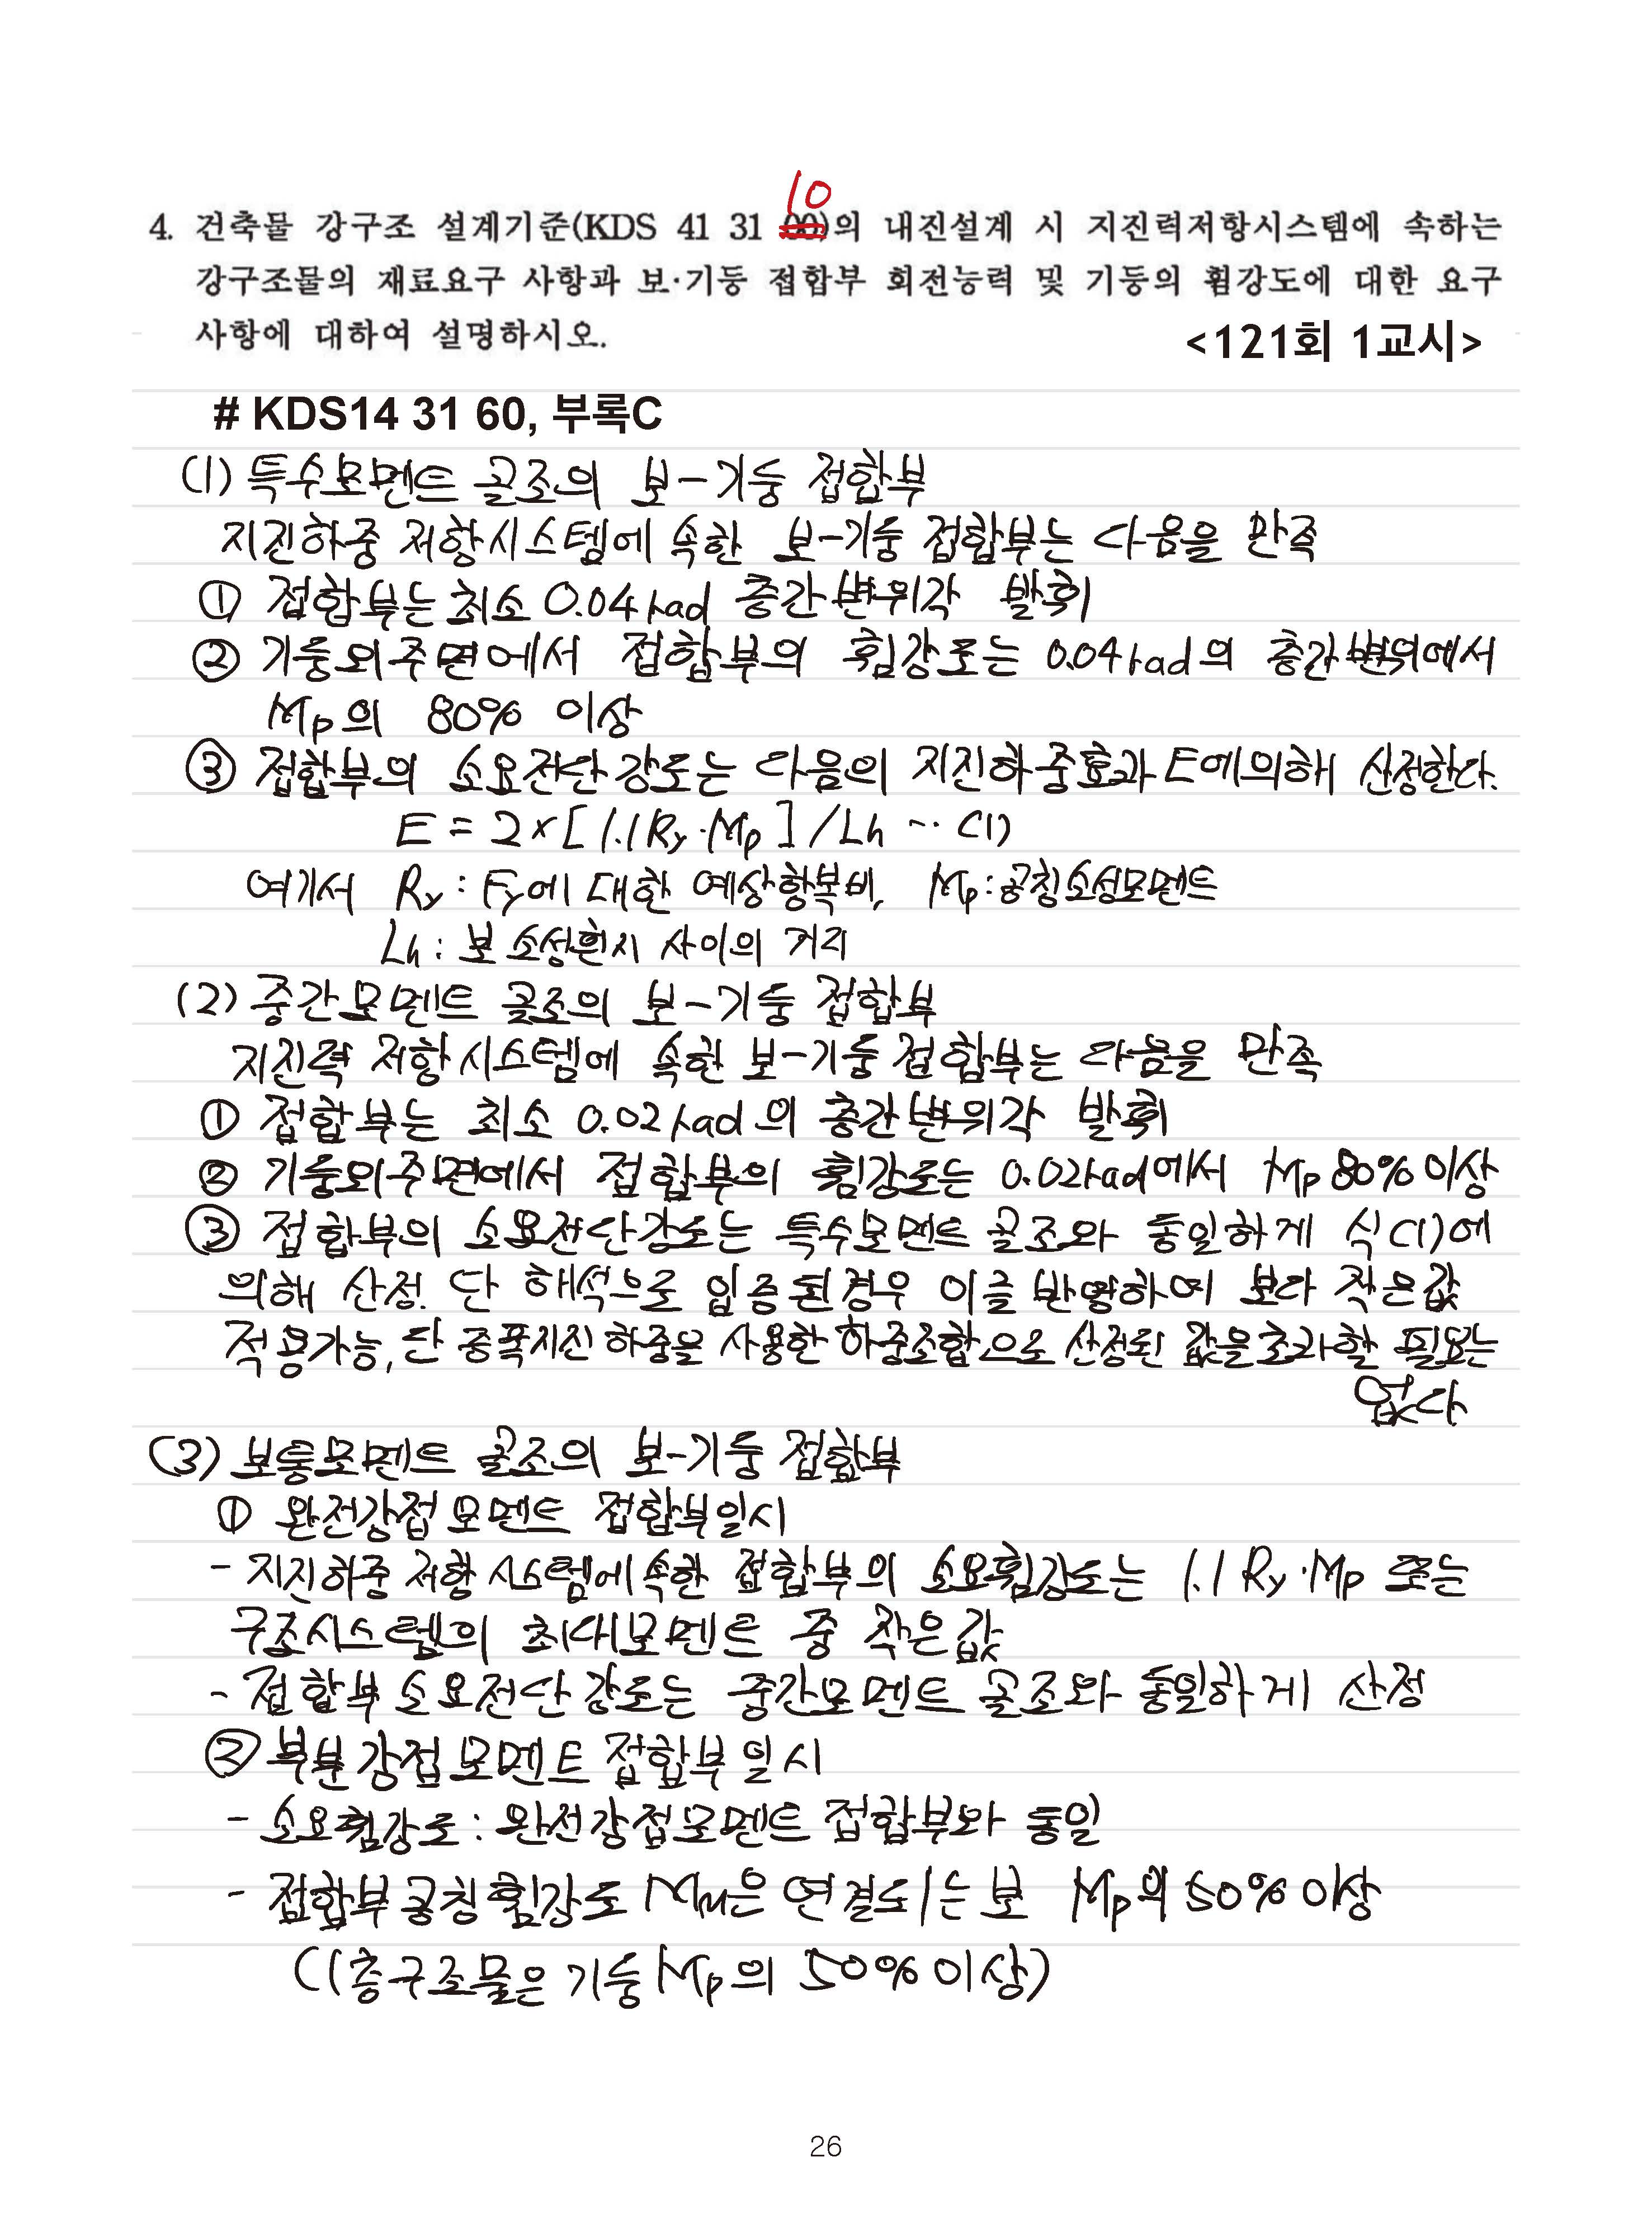 10
4. 건축물 강구조 설계기준(KDS 41 31 00)의 내진설계 시 지진력저항시스템에 속하는
강구조물의 재료요구 사항과 보·기둥 접합부 회전능력 및 기둥의 휨강도에 대한 요구
사항에 대하여 설명하시오.
<121회 1교시>
# KDS14 31 60, 부록C
(1) 특수모멘트 골조의 보-기둥 접합부
지진하중 저항시스템에 속한 보-기둥 접합부는 다음을 만족
① 접합부는 최소 0.04rad 층간변위각 발휘
② 기둥외주면에서 접합부의 휨강도는 0.04rad의 층간변위에서
Mp의 80% 이상
③ 접합부의 소요전단강도는 다음의 지진하중효과 E에의해 산정한다.
E = 2×[1.1Ry·Mp]/Lh ‥ (1)
여기서 Ry : Fy에 대한 예상항복비, Mp:공칭소성모멘트
Lh : 보 소성힌지 사이의 거리
(2) 중간모멘트 골조의 보-기둥 접합부
지진력 저항시스템에 속한 보-기둥접합부는 다음을 만족
① 접합부는 최소 0.02rad의 층간변위각 발휘
② 기둥외주면에서 접합부의 휨강도는 0.02rad에서 Mp 80%이상
③ 접합부의 소요전단강도는 특수모멘트 골조와 동일하게 식(1)에
의해 산정. 단 해석으로 입증된경우 이를 반영하여 보다 작은값
적용가능, 단 증폭지진하중을 사용한 하중조합으로 산정된 값을초과할 필요는
없다
(3) 보통모멘트 골조의 보-기둥 접합부
① 완전강접모멘트 접합부일시
- 지진하중 저항 시스템에속한 접합부의 소요휨강도는 1.1 Ry·Mp 또는
구조시스템의 최대모멘트 중 작은값
- 접합부 소요전단강도는 중간모멘트 골조와 동일하게 산정
② 부분강접모멘트 접합부일시
- 소요휨강도 : 완전강접모멘트 접합부와 동일
- 접합부공칭휨강도 Mn은 연결되는 보 Mp의 50% 이상
(1층구조물은 기둥 Mp의 50%이상)
26